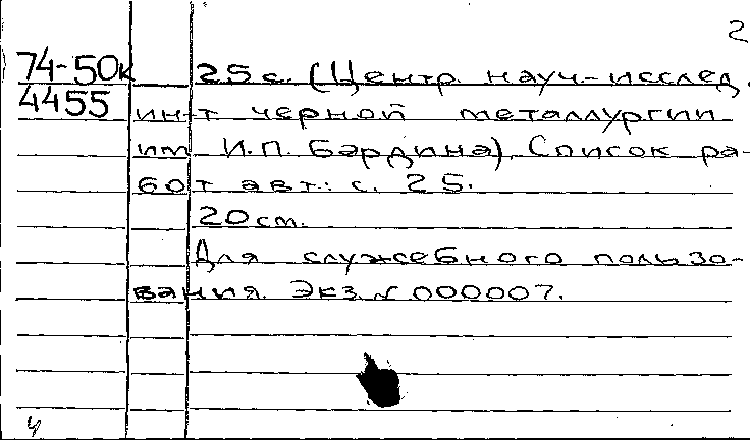 2
74-50к 25 с. (Центр. науч-исслед.
4455 ин-т черной металлургии
им И.П. Бардина). Список ра-
бот авт.: с. 25.
20 см.
Для служебного пользо-
вания. Экз. № 000007.
4